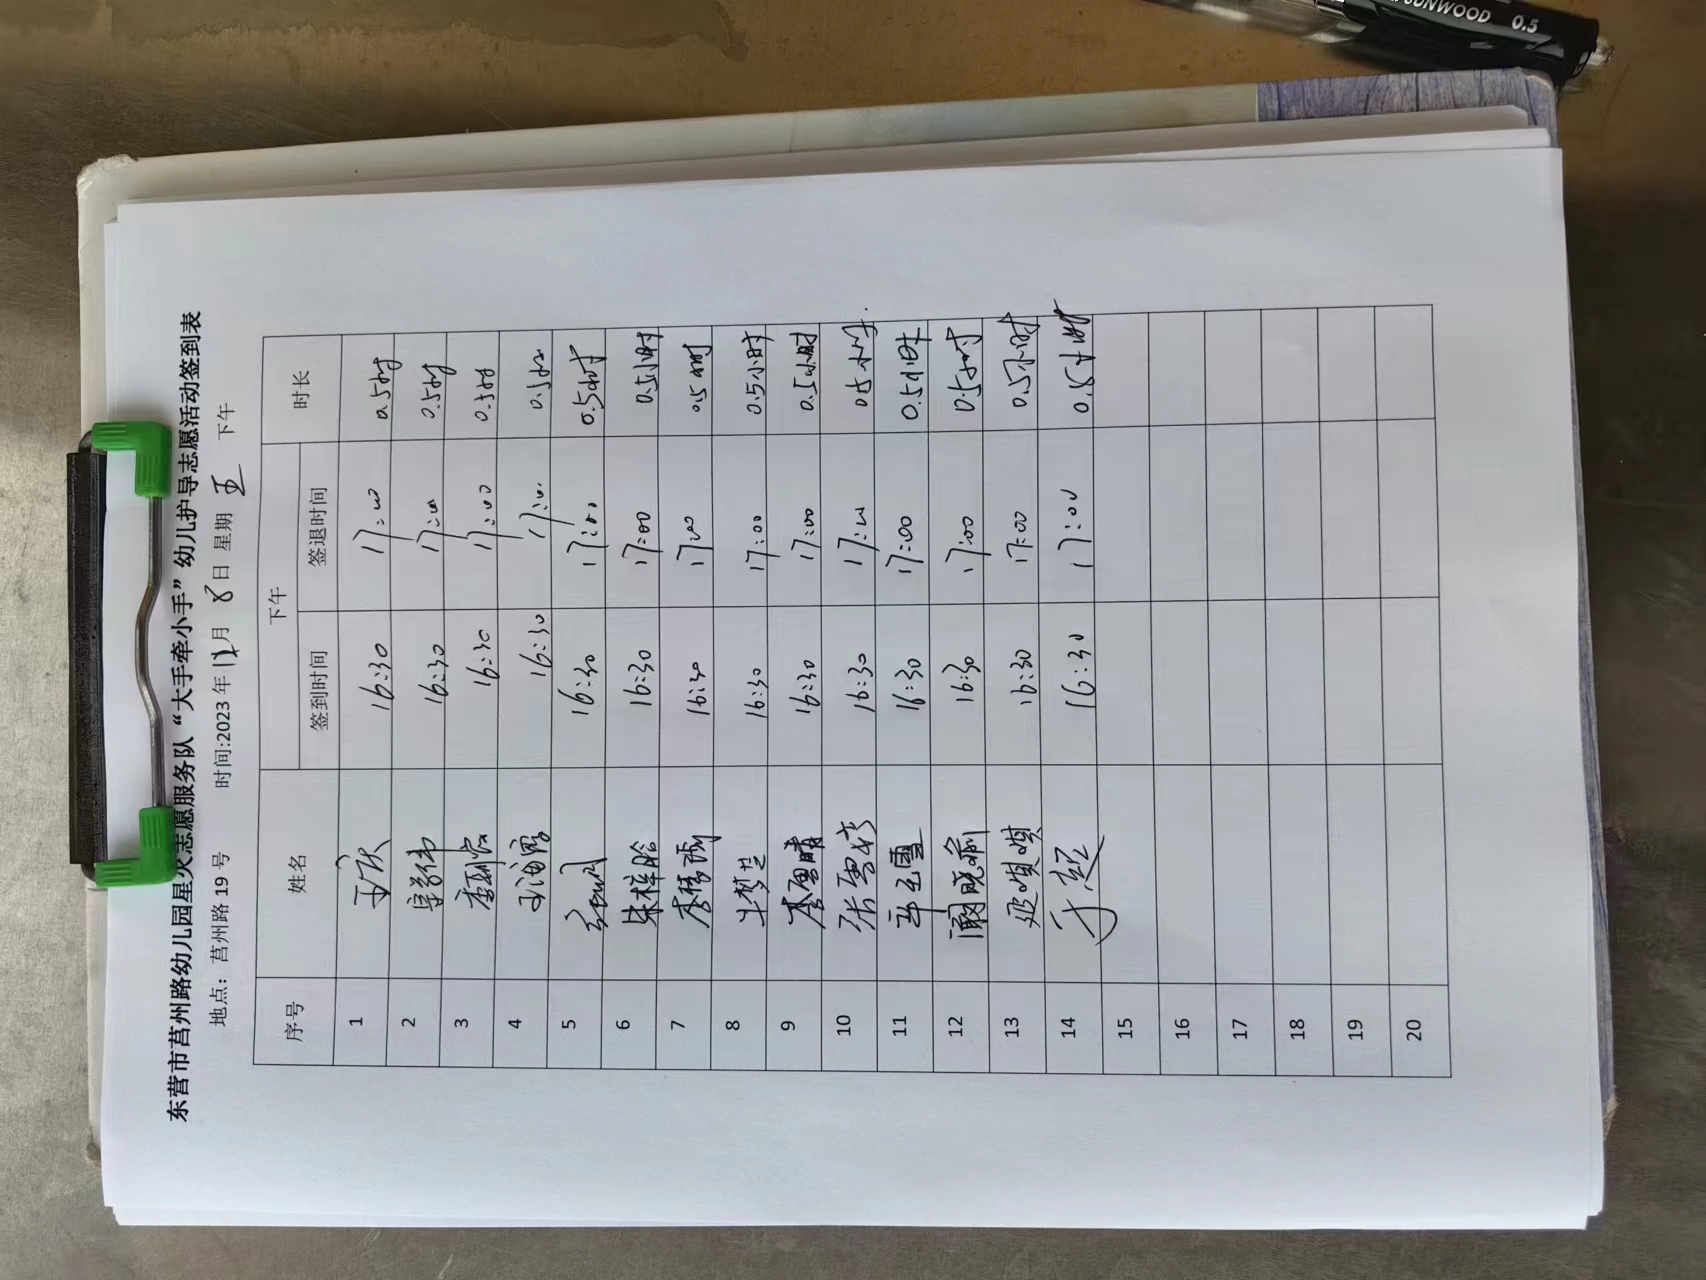 东营市莒州路幼儿园星火志愿服务队“大手牵小手”幼儿护导志愿活动签到表
地点：莒州路19号 时间:2023年12月8日 星期 五 下午
序号 姓名 下午 时长
签到时间 签退时间
1 16:30 17:00 0.5小时
2 16:30 17:00 0.5小时
3 16:30 17:00 0.5小时
4 16:30 17:00 0.5小时
5 16:30 17:00 0.5小时
6 朱梓晗 16:30 17:00 0.5小时
7 16:30 17:00 0.5小时
8 16:30 17:00 0.5小时
9 李雪晴 16:30 17:00 0.5小时
10 张雪 16:30 17:00 0.5小时
11 16:30 17:00 0.5小时
12 16:30 17:00 0.5小时
13 16:30 17:00 0.5小时
14 16:30 17:00 0.5小时
15
16
17
18
19
20
0.5